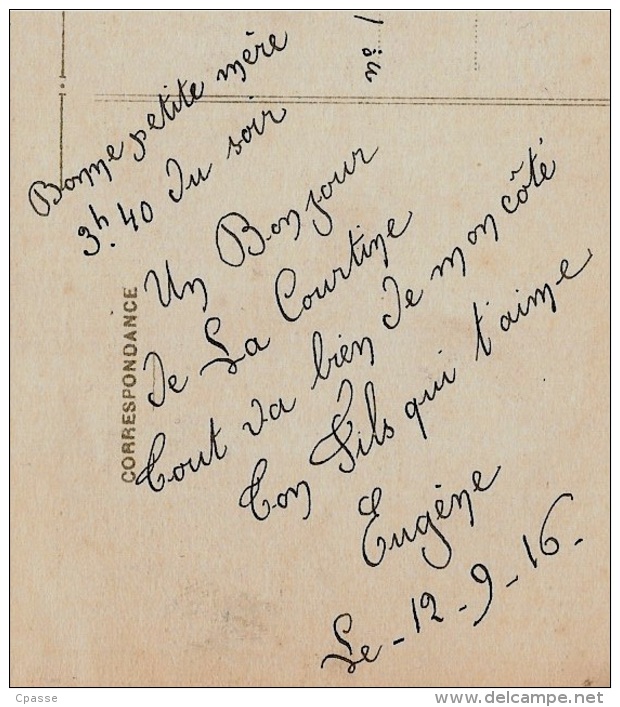 Bonne petite mère
3h.40 du soir
Un Bonjour
de La Courtine
Tout va bien de mon côté
Ton Fils qui t'aime
Eugène
Le - 12 - 9 - 16 -
CORRESPONDANCE
Cpasse
www.delcampe.net